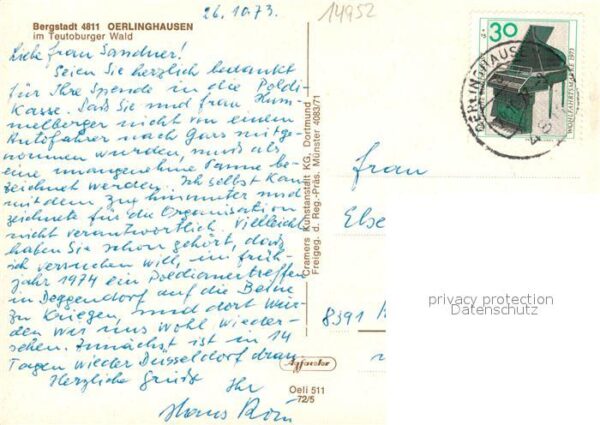 26.10.73.
14952
Bergstadt 4811 OERLINGHAUSEN
im Teutoburger Wald
Liebe Frau Sandner!
Seien Sie herzlich bedankt
für Ihre Spende in die Poldi-
Kasse. Daß Sie und Frau Hum-
melberger nicht von einem
Autofahrer nach Gars mitge-
nommen wurden, muß als
eine unangenehme Panne be-
zeichnet werden. Ich selbst kam
mit dem Zug hinunter und
zeichnete für die Organisation
nicht verantwortlich. Vielleicht
haben Sie schon gehört, daß
ich versuchen will, im Früh-
jahr 1974 ein Poldianertreffen
in Deggendorf auf die Beine
zu kriegen, und dort wür-
den wir uns wohl wieder-
sehen. Zunächst ist in 14
Tagen wieder Düsseldorf dran.
Herzliche Grüße
Ihr
Hans
Cramers Kunstanstalt KG, Dortmund
Freigeg. d. Reg.-Präs. Münster 4083/71
Oeli 511
72/5
30
WOHLFAHRTSMARKE 1973
OERLINGHAUSEN
Frau
Else
8391
privacy protection
Datenschutz